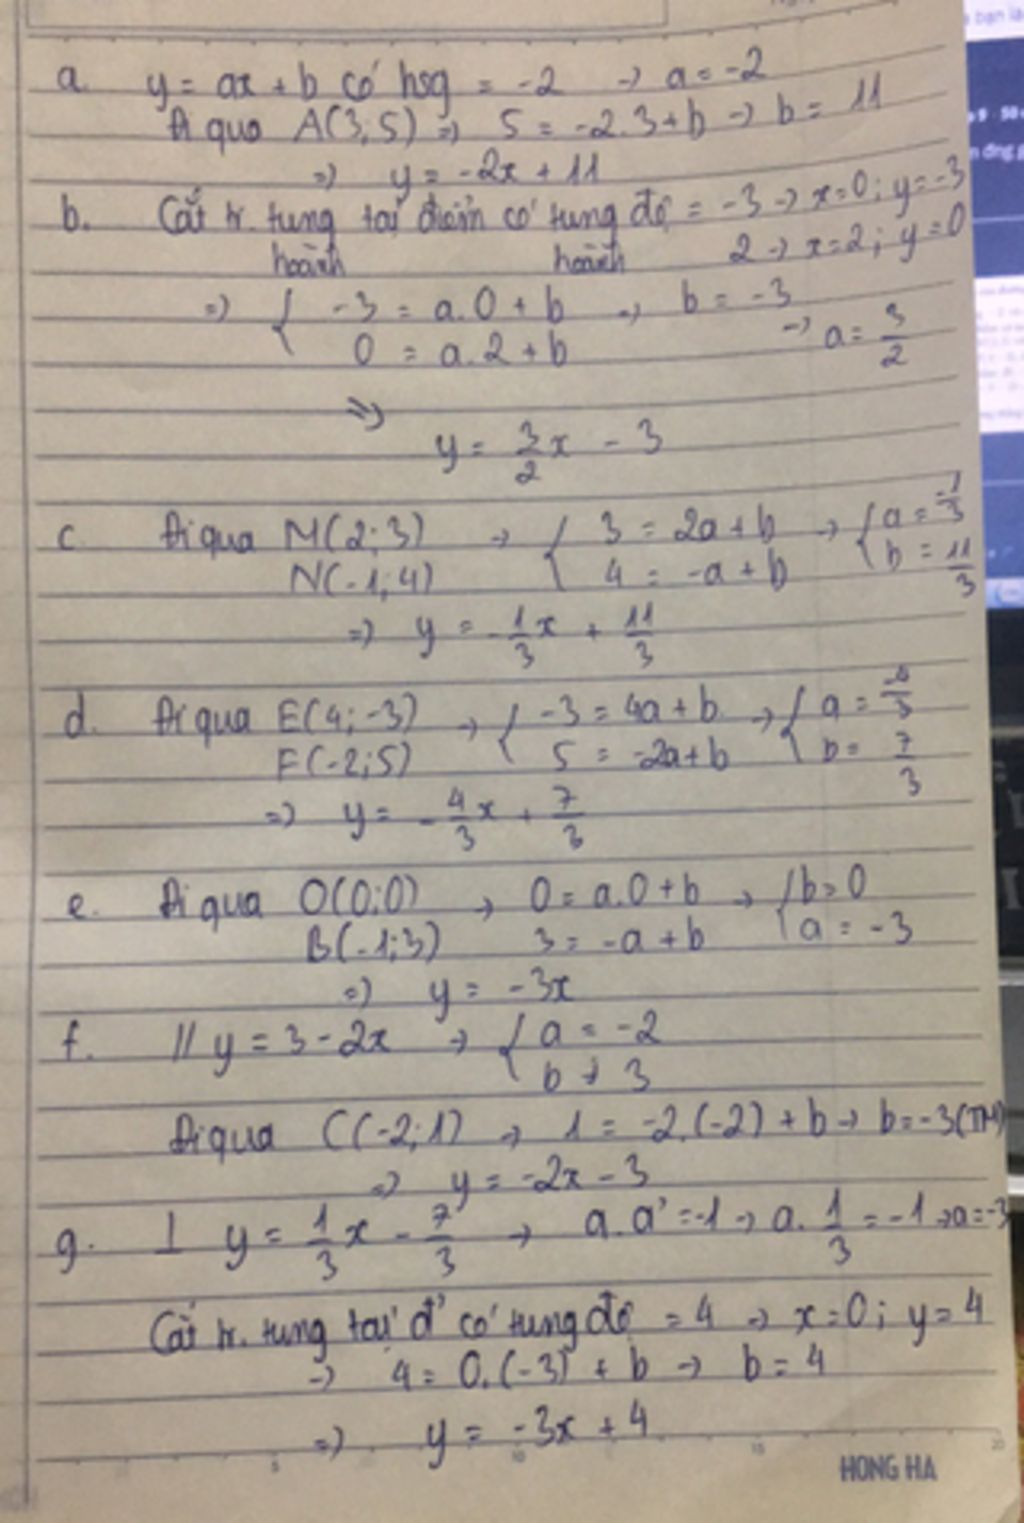 a. y = ax + b có hsg = -2 → a = -2
Đi qua A(3; 5) ⇒ 5 = -2.3 + b → b = 11
⇒ y = -2x + 11
b. Cắt tr. tung tại điểm có tung độ = -3 → x = 0; y = -3
hoành hoành 2 → x = 2; y = 0
⇒ { -3 = a.0 + b → b = -3
0 = a.2 + b → a = 3/2
⇒
y = 3/2 x - 3
c. Đi qua M(2; 3) → { 3 = 2a + b → { a = -1/3
N(-1; 4) 4 = -a + b b = 11/3
⇒ y = -1/3 x + 11/3
d. Đi qua E(4; -3) → { -3 = 4a + b → { a = -4/3
F(-2; 5) 5 = -2a + b b = 7/3
⇒ y = -4/3 x + 7/3
e. Đi qua O(0; 0) → 0 = a.0 + b → { b = 0
B(-1; 3) 3 = -a + b a = -3
⇒ y = -3x
f. // y = 3 - 2x → { a = -2
b ≠ 3
Đi qua C(-2; 1) → 1 = -2.(-2) + b → b = -3 (TM)
⇒ y = -2x - 3
g. ⊥ y = 1/3 x - 7/3 → a.a' = -1 → a. 1/3 = -1 → a = -3
Cắt tr. tung tại đ' có tung độ = 4 → x = 0; y = 4
→ 4 = 0.(-3) + b → b = 4
⇒ y = -3x + 4
5 10 15 20
HONG HA